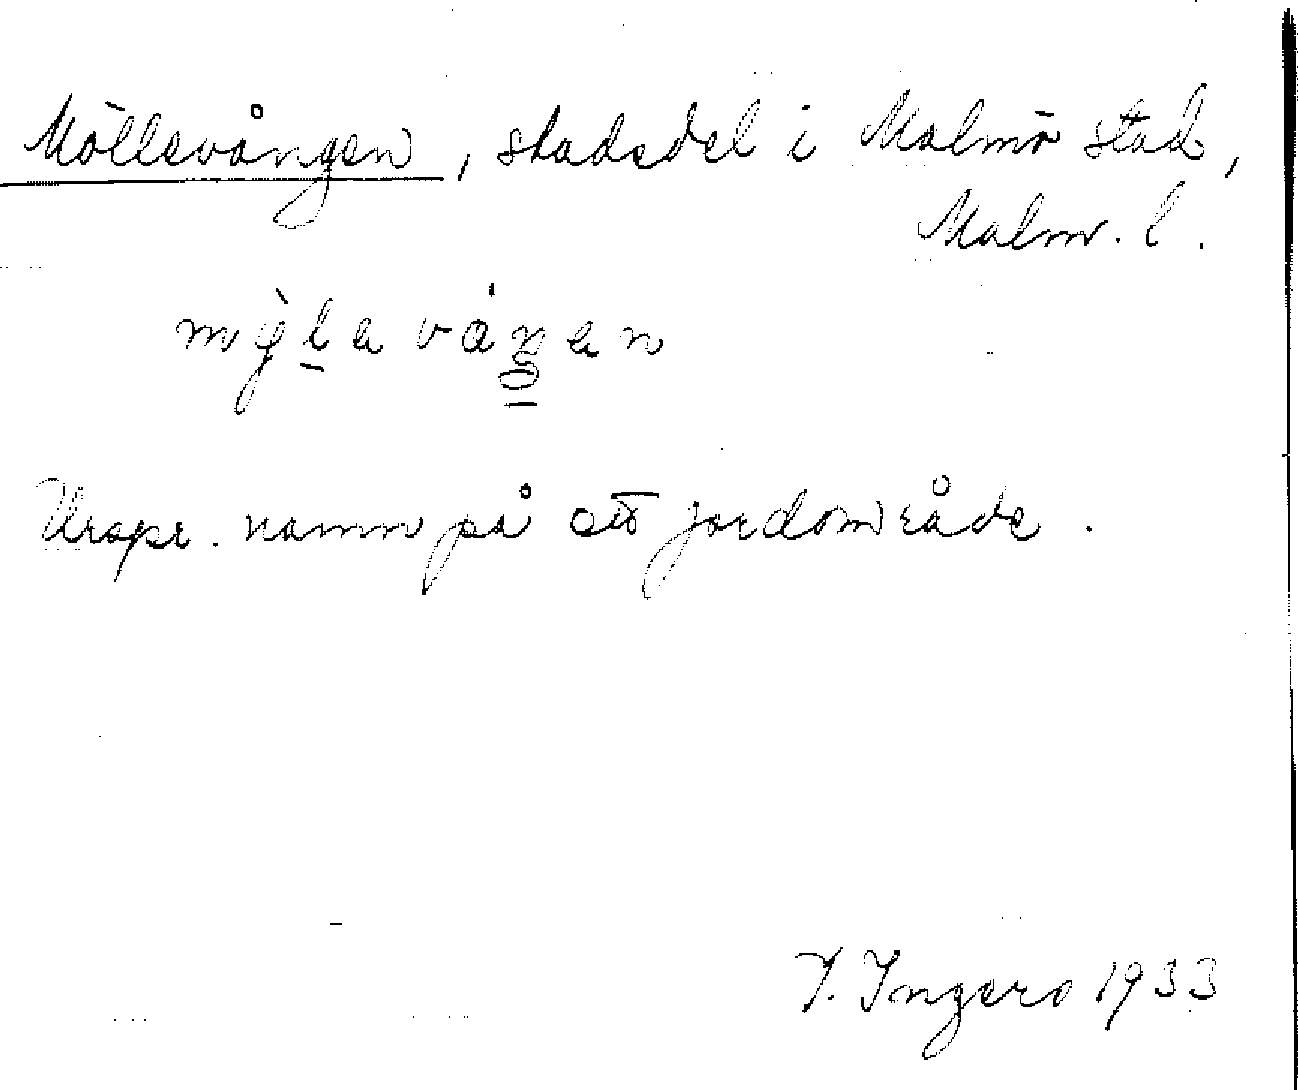 Möllevången, stadsdel i Malmö stad,
Malm. l.
Urspr. namn på ett jordområde.
Ingers 1933